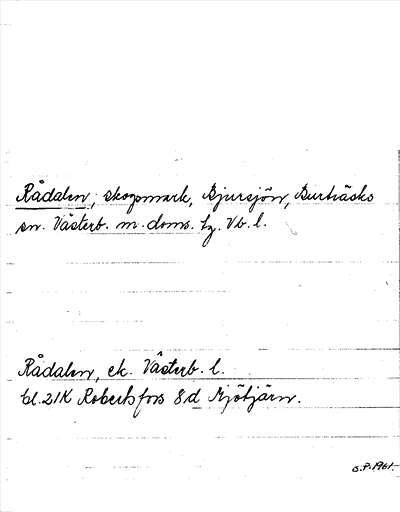 Rådalen, skogsmark, Bjursjön, Burträsks
sn. Västerb. m. doms. hg. Vb. l.
Rådalen, ek. Västerb. l.
bl. 21K Robertsfors 8d Mjötjärn.
S.P. 1961.